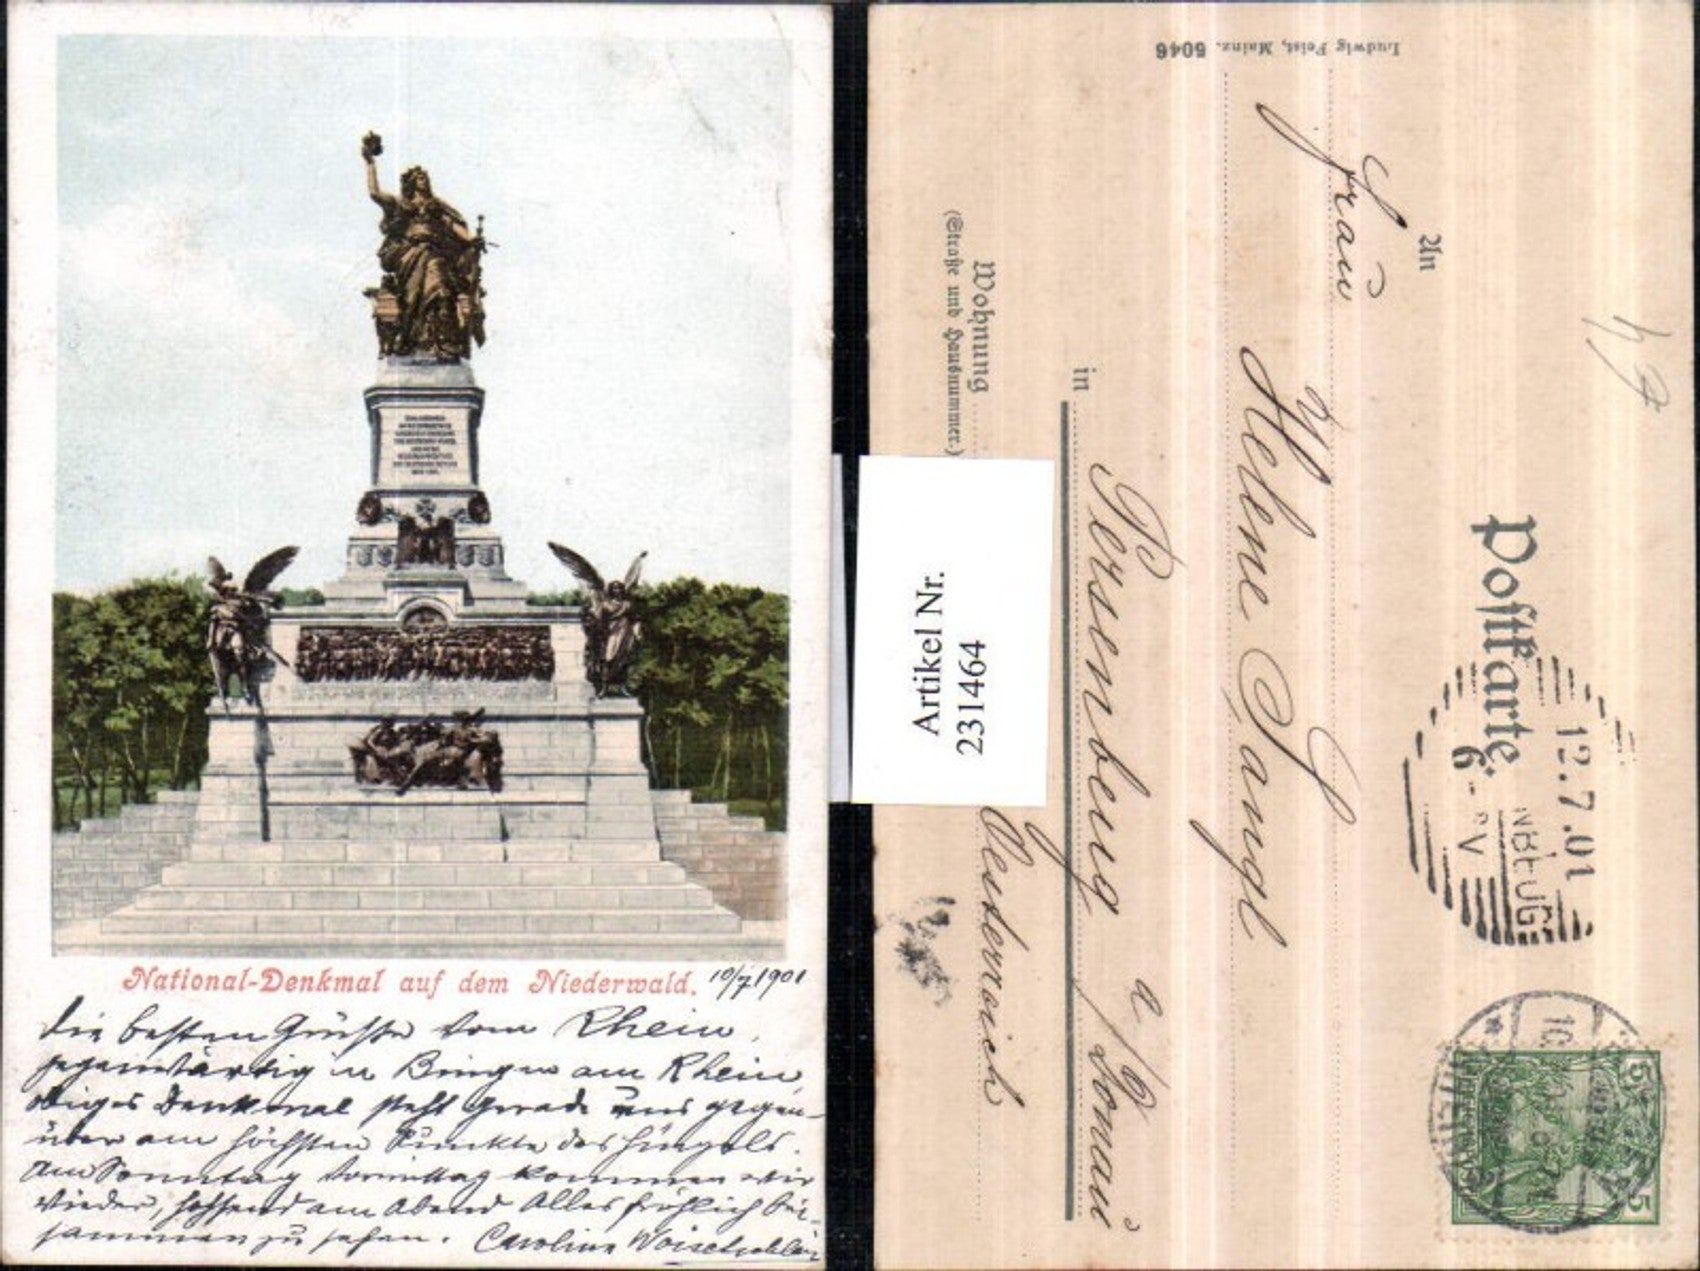 National-Denkmal auf dem Niederwald. 10/7 1901
die besten Grüsse vom Rhein,
gegenwärtig in Bingen am Rhein
obiges Denkmal steht gerade uns gegen-
über am höchsten Punkte des Hügels.
Am Sonntag Vormittag kommen wir
wieder, hoffend am Abend Alles fröhlich bei-
sammen zu sehen. Caroline
Artikel Nr.
231464
Postkarte.
12.7.01
6 - V
An
Frau
Helene Sangl
in
Persenbeug a/Donau
Wohnung
(Straße und Hausnummer.)
Oesterreich
Ludwig Feist, Mainz. 5046
5 5